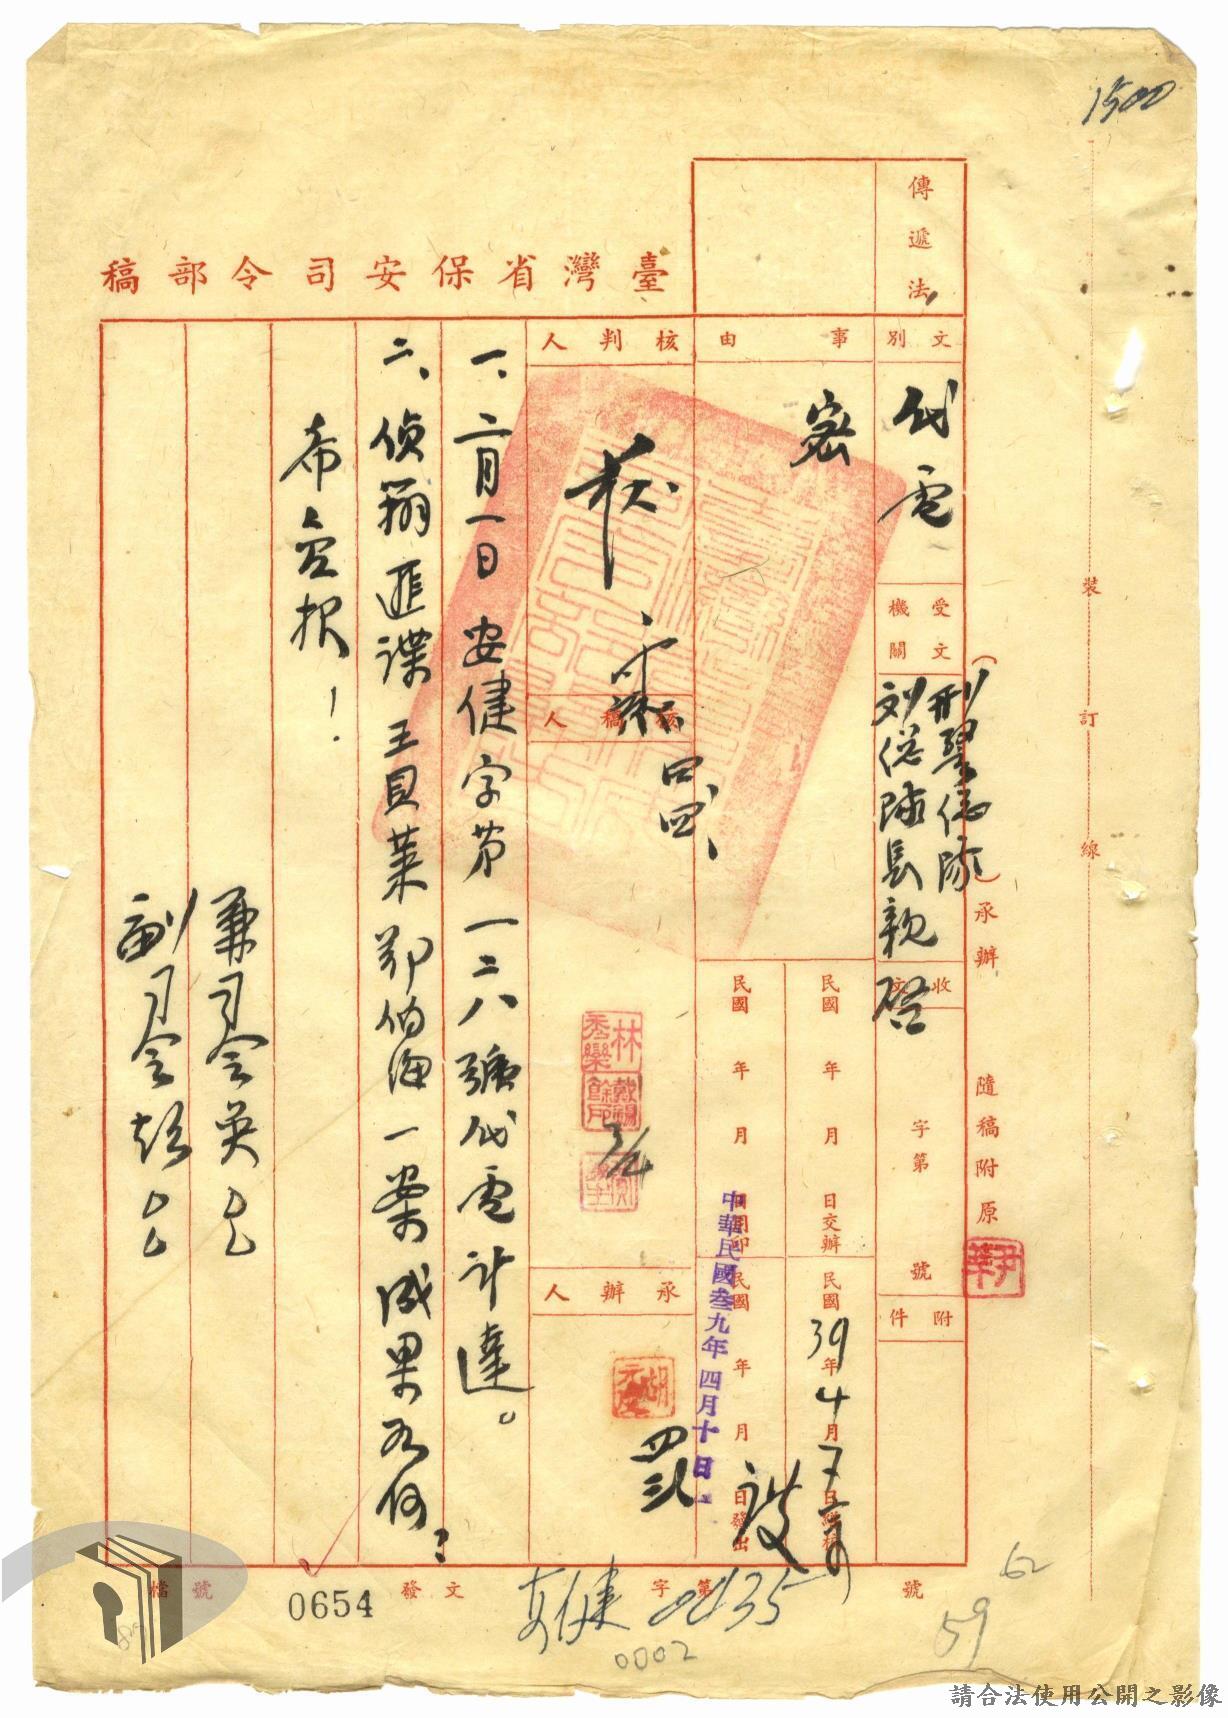 1500
臺灣省保安司令部稿
傳遞法
文別
代電
受文機關
刑警總隊
劉總隊長親啟
收文
字第
號
附件
事由
密
民國 年 月 日交辦
民國39年4月
民國 年 月
民國 年 月 日發出
中華民國叁九年四月十日
核判人
核稿人
承辦人
一、二月一日安健字第一二八號代電計達。
二、偵辦匪諜王貝葉鄂伯海一案成果為何?
希立報!
兼司令吳
副司令彭
(承辦)
隨稿附原
裝訂線
檔號
0654
發文
安健
字第
0435
號
0002
62
59
請合法使用公開之影像